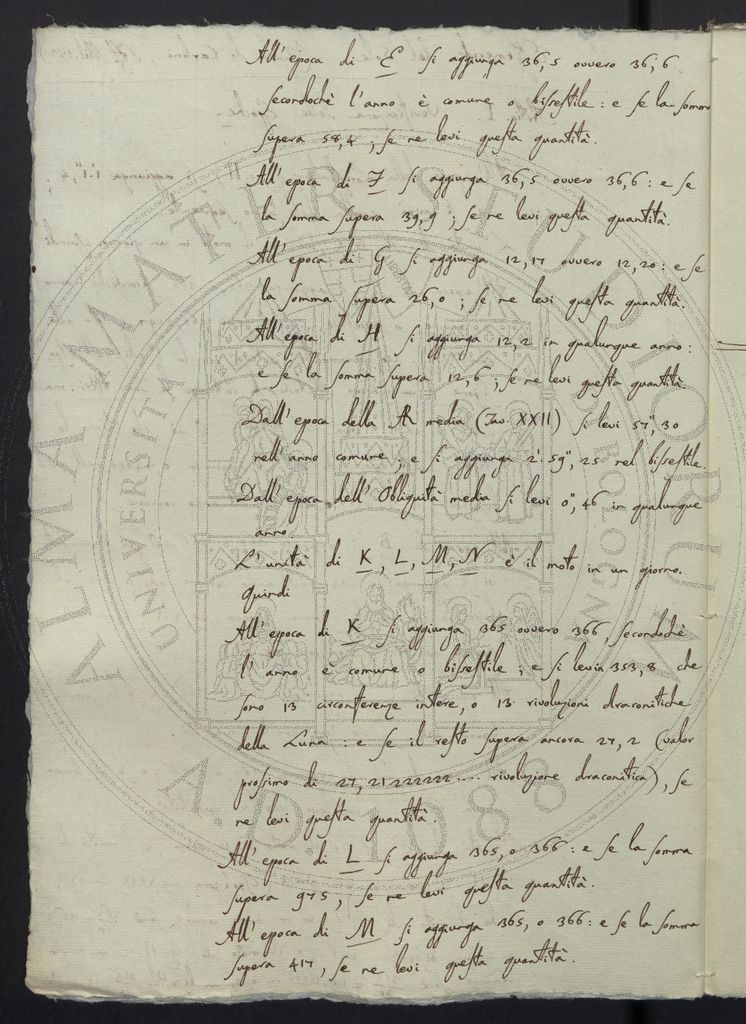 All'epoca di E si aggiunga 36,5 ovvero 36,6
secondochè l'anno è comune o bissestile: e se la somma
supera 58,4, se ne levi questa quantità.
All'epoca di F si aggiunga 36,5 ovvero 36,6: e se
la somma supera 39,9; se ne levi questa quantità.
All'epoca di G si aggiunga 12,17 ovvero 12,20: e se
la somma supera 26,0; se ne levi questa quantità.
All'epoca di H si aggiunga 12,2 in qualunque anno:
e se la somma supera 12,6; se ne levi questa quantità.
Dall'epoca della AR media (Tav. XXII) si levi 57",30
nell'anno comune; e si aggiunga 2' 59", 25 nel bissestile.
Dall'epoca dell'Obliquità media si levi 0", 46 in qualunque
anno.
L'unità di K, L, M, N è il moto in un giorno.
Quindi
All'epoca di K si aggiunga 365 ovvero 366, secondochè
l'anno è comune o bissestile; e si levin 353,8 che
sono 13 circonferenze intere, o 13 rivoluzioni draconitiche
della Luna: e se il resto supera ancora 27,2 (valor
prossimo di 27,21222222.... rivoluzione draconitica), se
ne levi questa quantità.
All'epoca di L si aggiunga 365, o 366: e se la somma
supera 975, se ne levi questa quantità.
All'epoca di M si aggiunga 365, o 366: e se la somma
supera 417, se ne levi questa quantità.
ALMA MATER STUDIORUM
UNIVERSITÀ
BOLOGNA
A.D. 1088